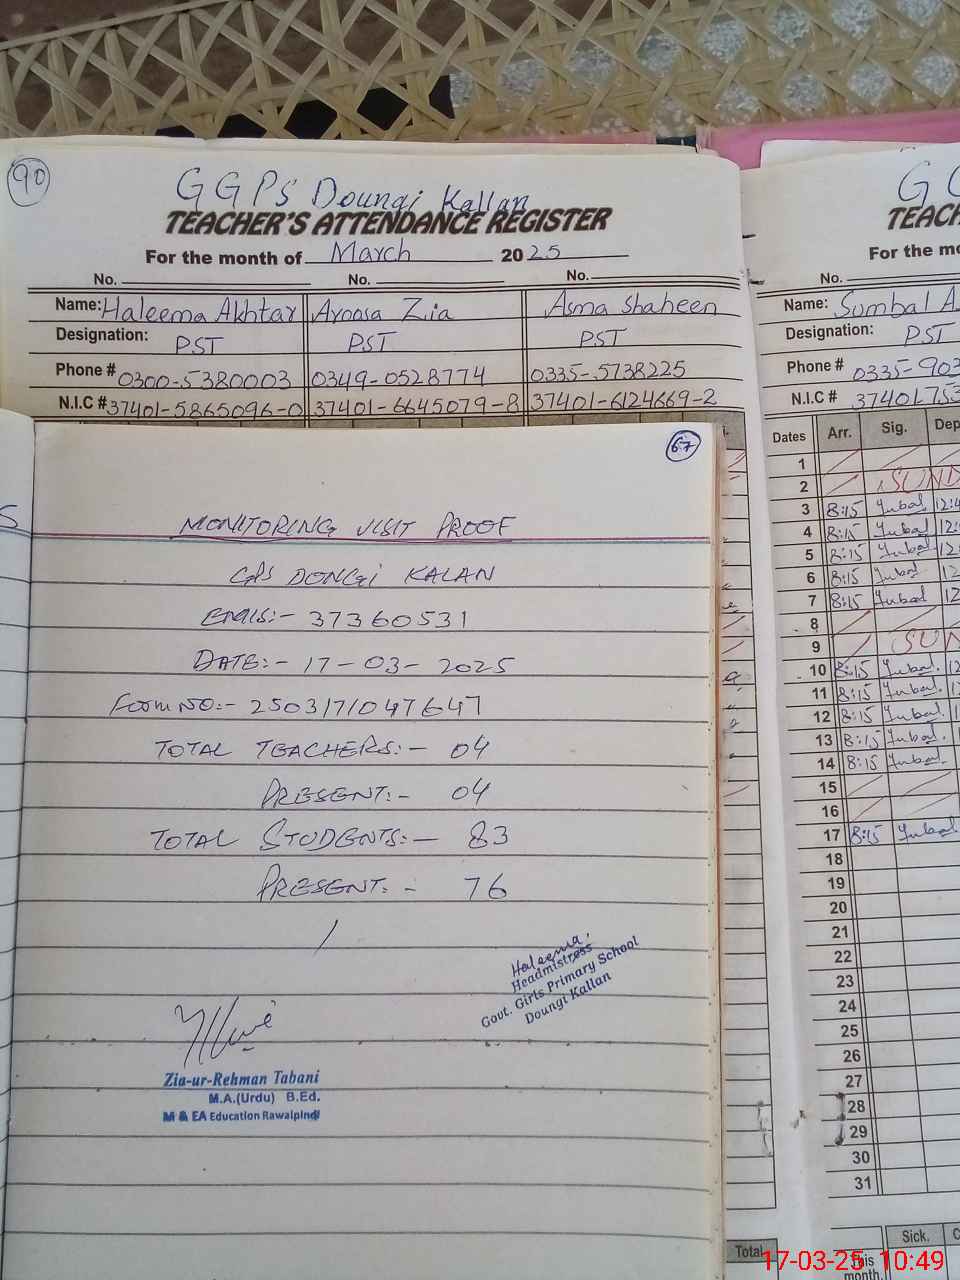 90
GGPS Doungi Kallan
TEACHER'S ATTENDANCE REGISTER
For the month of March 2025
No. No. No.
Name: Haleema Akhtar Aroosa Zia Asma Shaheen
Designation: PST PST PST
Phone # 0300-5380003 0349-0528774 0335-5738225
N.I.C # 37401-5865096-0 37401-6645079-8 37401-6124669-2
67
MONITORING VISIT PROOF
GPS DONGI KALAN
EMIS:- 37360531
DATE:- 17-03-2025
Form NO:- 250317104 7647
TOTAL TEACHERS:- 04
PRESENT:- 04
TOTAL STUDENTS:- 83
PRESENT:- 76
Haleema
Headmistress
Govt. Girls Primary School
Doungi Kallan
Zia-ur-Rehman Tabani
M.A.(Urdu) B.Ed.
M & EA Education Rawalpindi
Total
For the m
No.
Name: Sumbal A
Designation: PST
Phone # 0335-903
N.I.C # 37401753
Dates Arr. Sig. Dep
1
2 SUND
3 8:15 12:4
4 8:15 12:
5 8:15 12:
6 8:15 12
7 8:15 12
8
9 SUN
10 8:15 12
11 8:15
12 8:15
13 8:15
14 8:15
15
16
17 8:15
18
19
20
21
22
23
24
25
26
27
28
29
30
31
Sick.
This
month
17-03-25 10:49